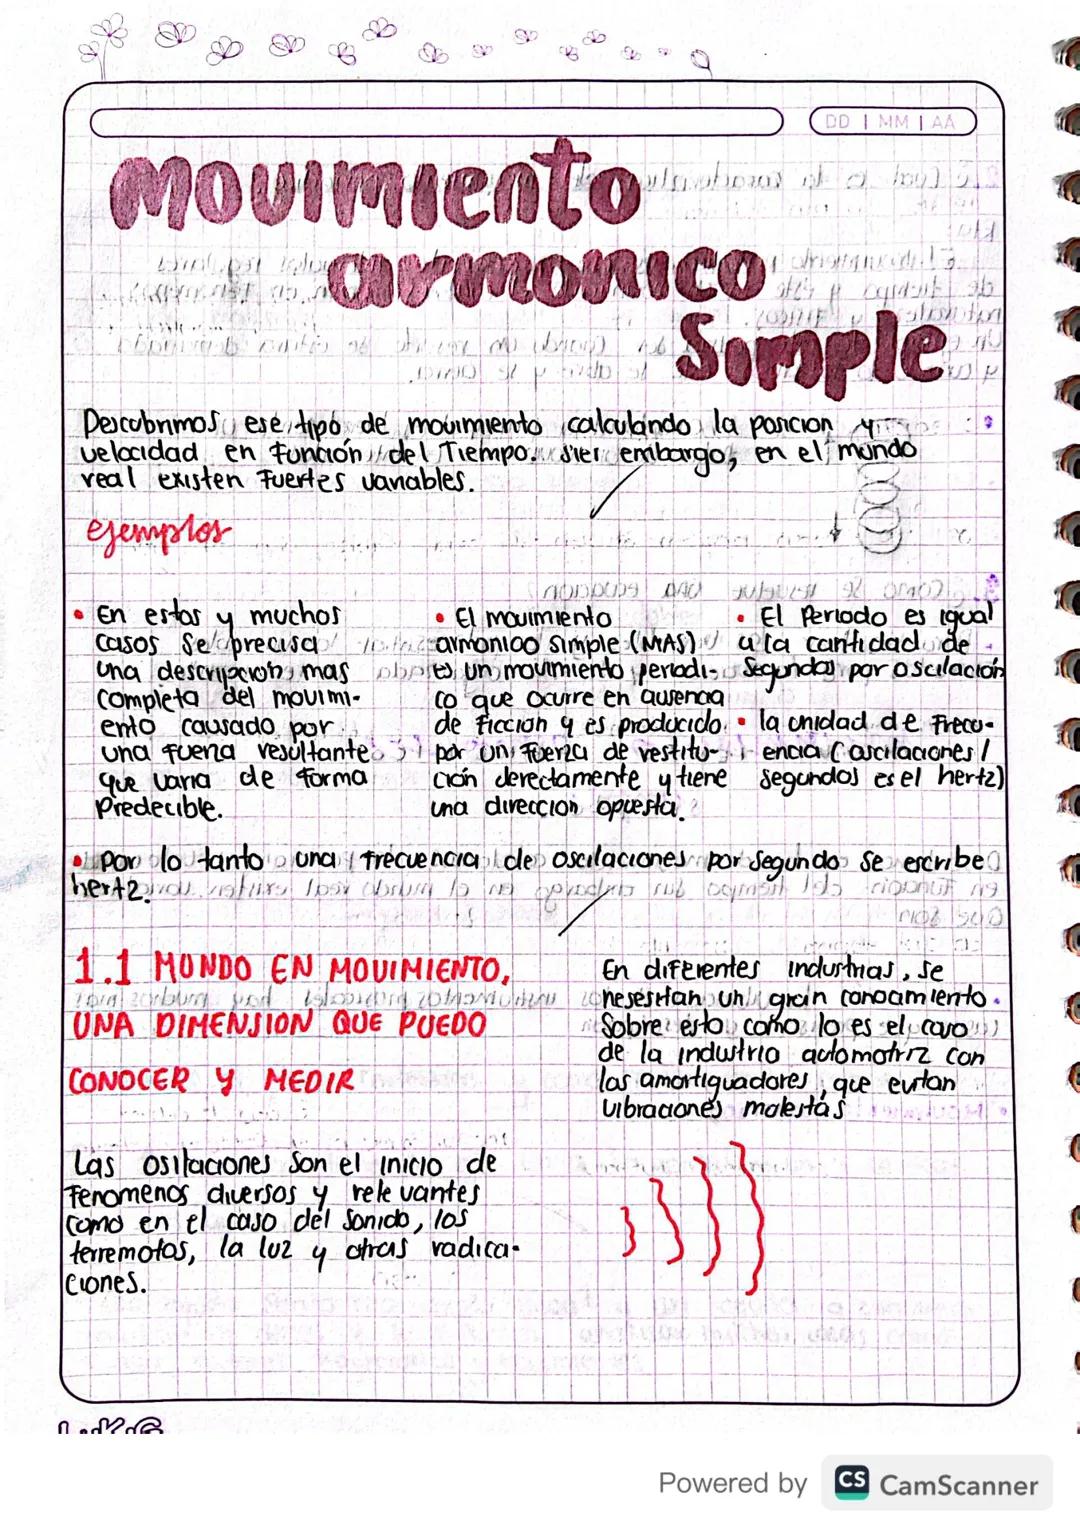 DD | MM | AA
Movimiento
armonico
Simple
Descubrimos ese tipo de movimiento calculando la posicion y
velocidad en Función del Tiempo. embargo, en el mundo
real existen Fuertes variables.
ejemplos
• En estos y muchos
casos Se precisa
una descripcion mas
completa del movimi-
ento causado por
una Fuerza resultante
que varia de forma
Predecible.
• El movimiento
armonico simple (MAS)
es un movimiento periodi-
co que ocurre en ausencia
de Ficcion y es producido
por un Fuerza de restitu-
ción derectamente y tiene
una direccion opuesta.
• El Periodo es igual
a la cantidad de
Segundos por oscilación
• la unidad de Frecu-
encia (oscilaciones /
segundos es el hertz)
• Por lo tanto una frecuencia de oscilaciones por segundo se escribe
hertz.
1.1 MUNDO EN MOVIMIENTO,
UNA DIMENSION QUE PUEDO
CONOCER Y MEDIR
Las osilaciones son el inicio de
Fenomenos diversos y relevantes
como en el caso del sonido, los
terremotos, la luz y otras radica-
ciones.
En diferentes industrias, se
nesesitan un gran conocamiento.
Sobre esto como lo es el caso
de la industria automotriz con
los amortiguadores, que evitan
vibraciones molestas
Powered by CS CamScanner